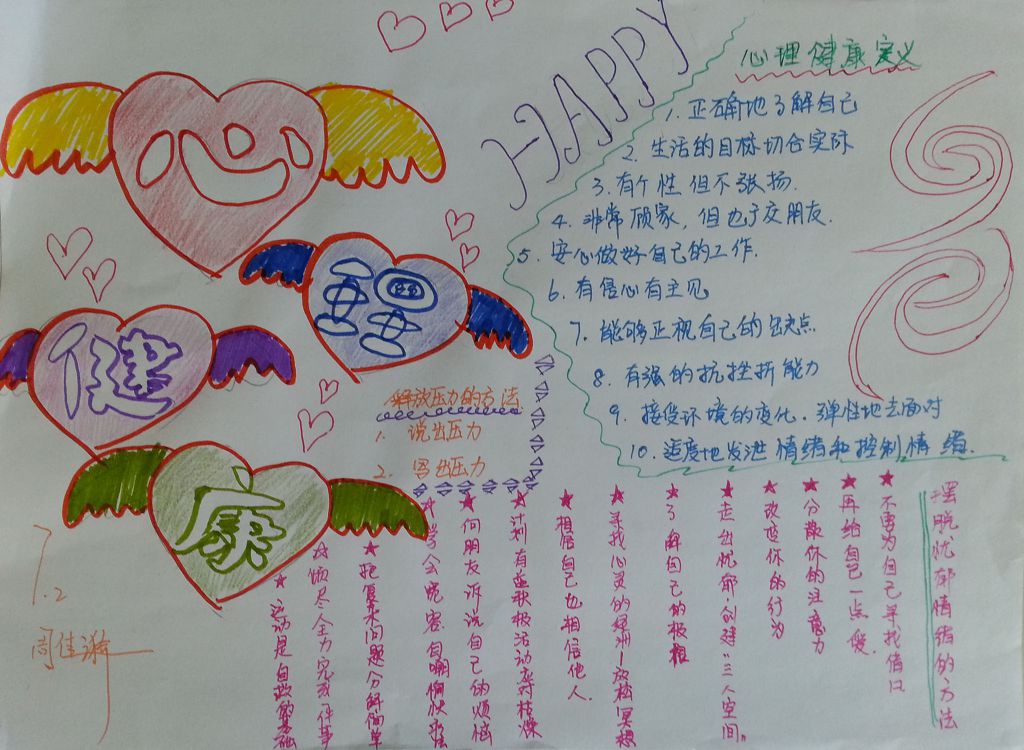 HAPPY
心理健康
心理健康定义
1. 正确地了解自己
2. 生活的目标切合实际
3. 有个性但不张扬.
4. 非常顾家, 但也于交朋友.
5. 安心做好自己的工作.
6. 有信心有主见
7. 能够正视自己的缺点
8. 有强的抗挫折能力
9. 接受环境的变化. 弹性地去面对
10. 适度地发泄情绪和控制情绪.
解放压力的方法
1. 说出压力
2. 写出压力
摆脱忧郁情绪的方法
★ 不要为自己寻找借口
★ 再给自己一点爱.
★ 分散你的注意力
★ 改变你的行为
★ 走出忧郁创建"三人空间"。
★ 了解自己的极限
★ 寻找心灵的绿洲—放松冥想
★ 相信自己也相信他人.
★ 计划有益积极活动应对枯燥
★ 向朋友诉说自己的烦恼
★ 学会宽容自嘲愉快
★ 把复杂问题分解简单
★ 做尽全力完成一件事
★ 运动是自救的基础
7.2